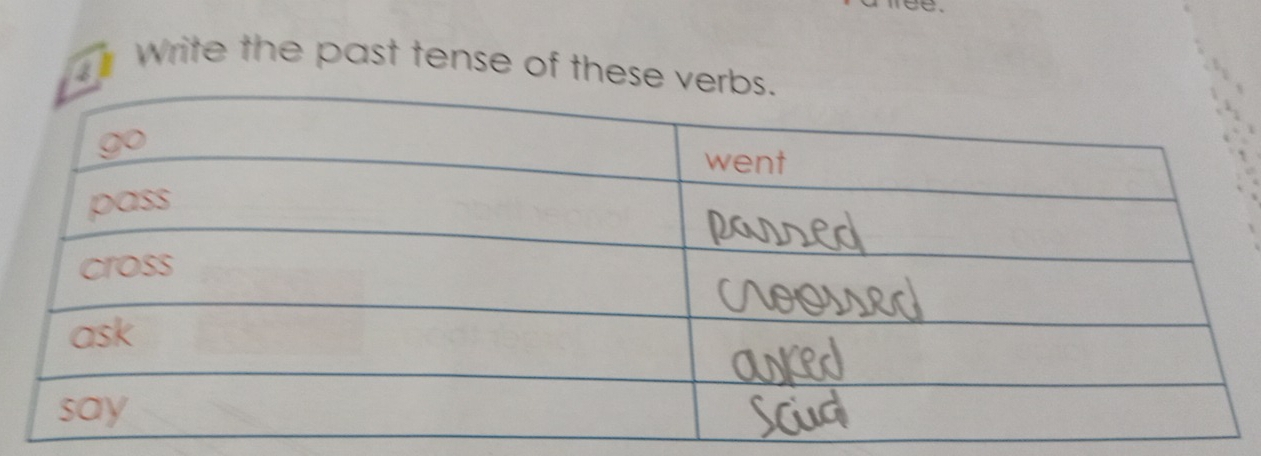 4 Write the past tense of these verbs.
go went
pass passed
cross croossed
ask asked
say said